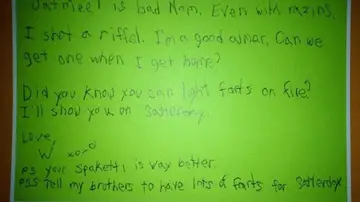 Oatmeel is bad Mom, Even with razins.
I shot a riffel. I'm a good aimar. Can we
get one when I get home?
Did you know you can light farts on fire?
I'll show you on Satterday.
Love,
W xoxo
PS your spaketti is vay better
PSS Tell my brothers to have lots of farts for Satterday